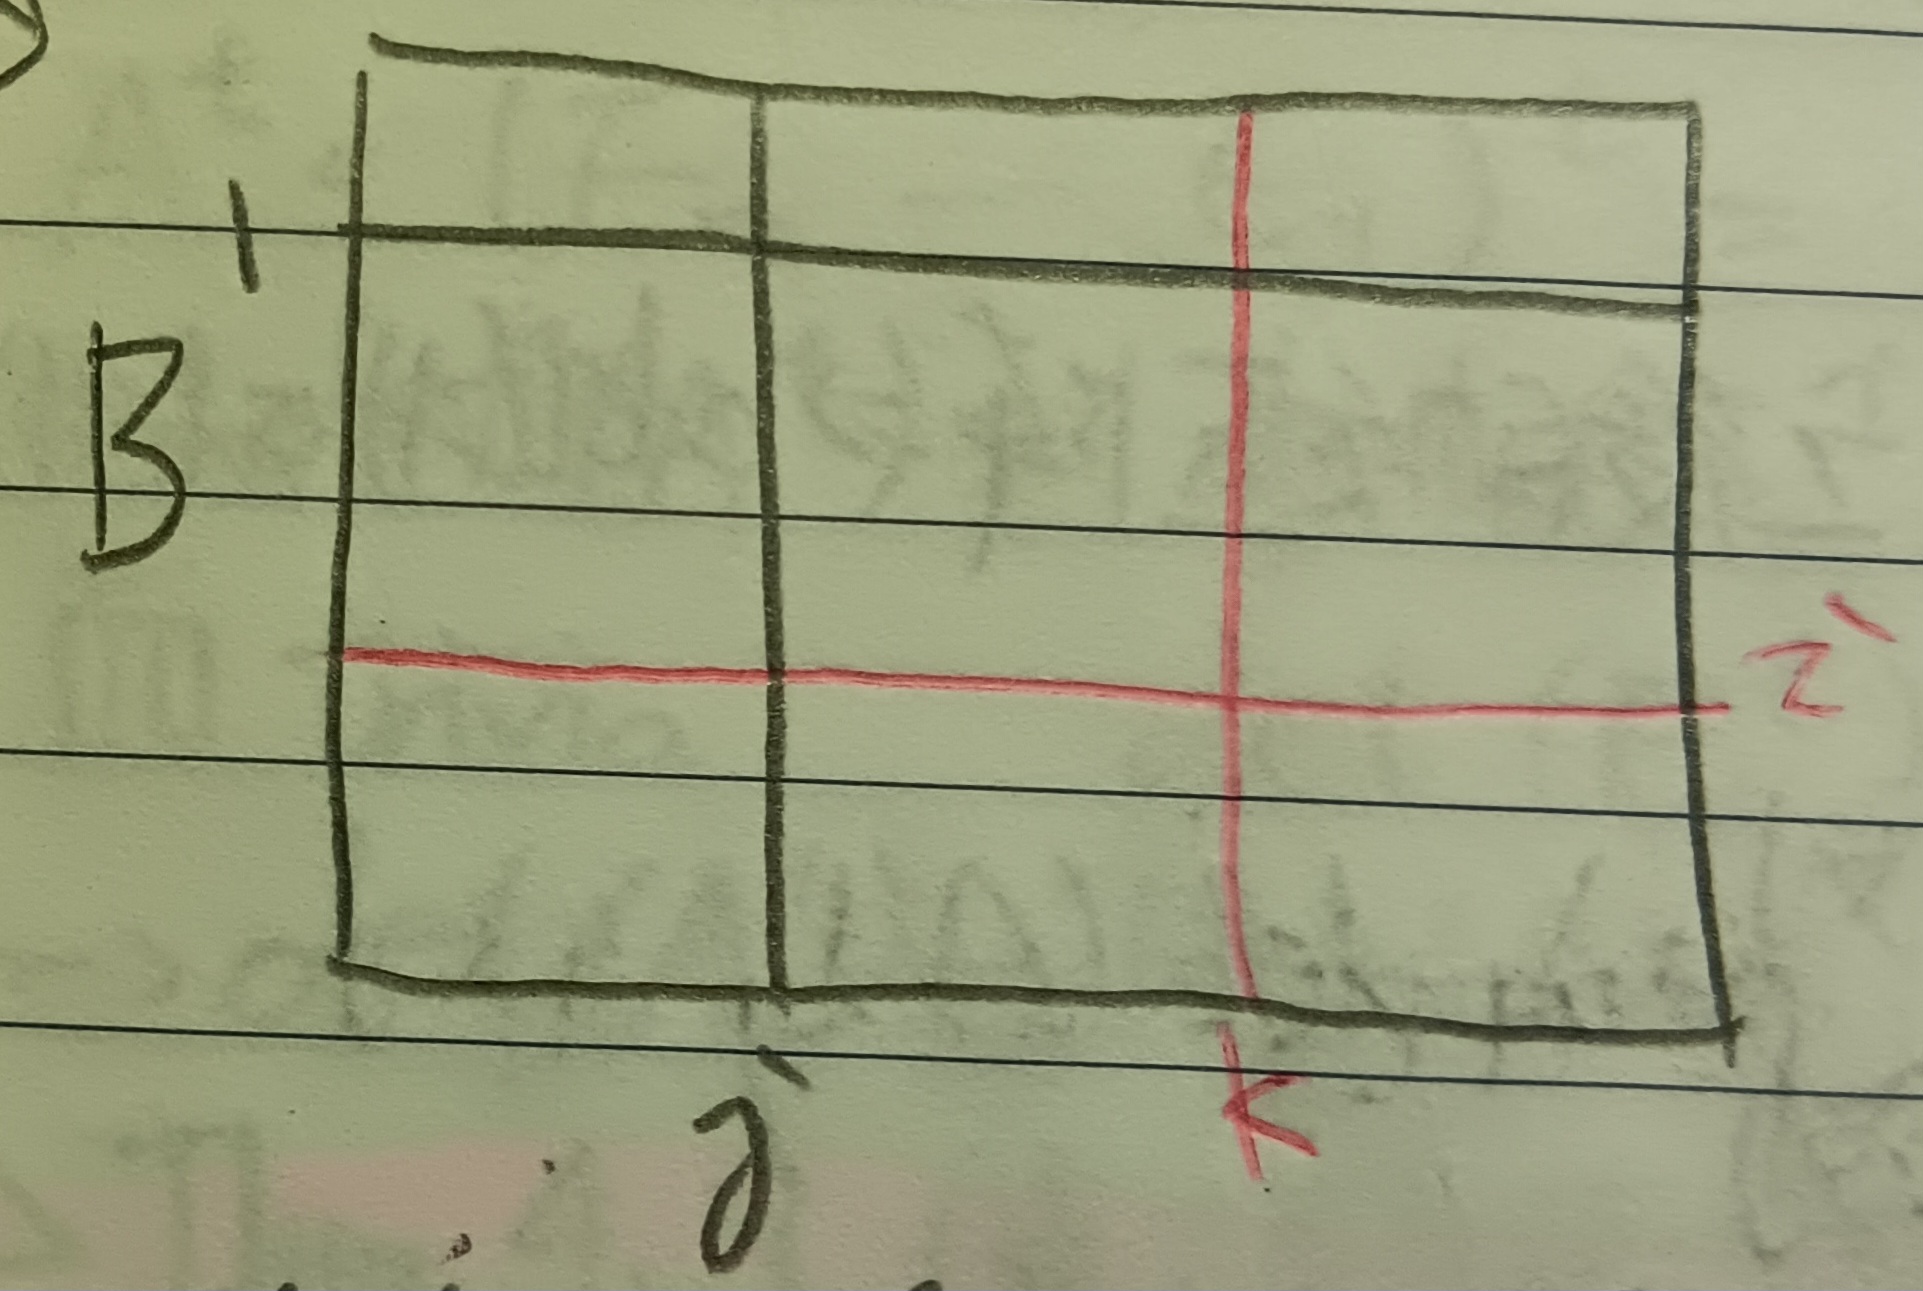 1
B
i
j
k